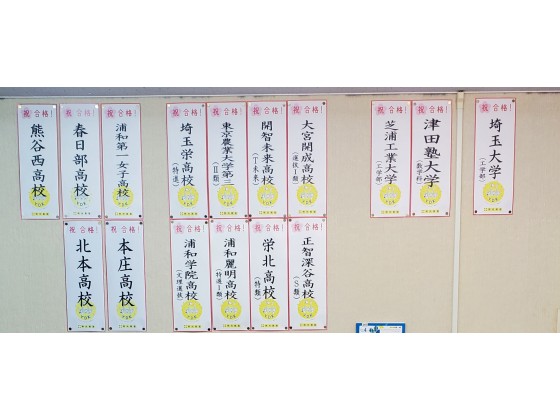 祝 合格!
熊谷西高校
祝 合格!
春日部高校
祝 合格!
浦和第一女子高校
祝 合格!
埼玉栄高校
(特進)
祝 合格!
東京農業大学第三
(Ⅱ類)
祝 合格!
開智未来高校
(T未来)
祝 合格!
大宮開成高校
(選抜Ⅰ類)
祝 合格!
芝浦工業大学
(工学部)
祝 合格!
津田塾大学
(数学科)
祝 合格!
埼玉大学
(工学部)
祝 合格!
北本高校
祝 合格!
本庄高校
祝 合格!
浦和学院高校
(文理選抜)
祝 合格!
浦和麗明高校
(特選Ⅰ類)
祝 合格!
栄北高校
(特類)
祝 合格!
正智深谷高校
(S類)